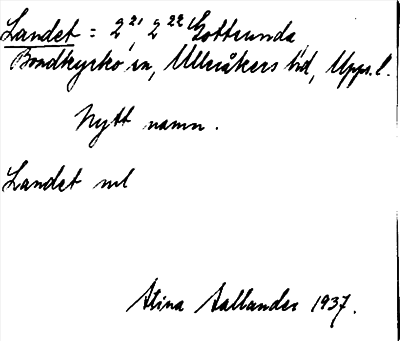 Landet = 2²¹, 2²² Gottsunda,
Bondkyrko sn, Ulleråkers hd, Upps. l.
Nytt namn.
Landet ml
Stina Aallander 1937.